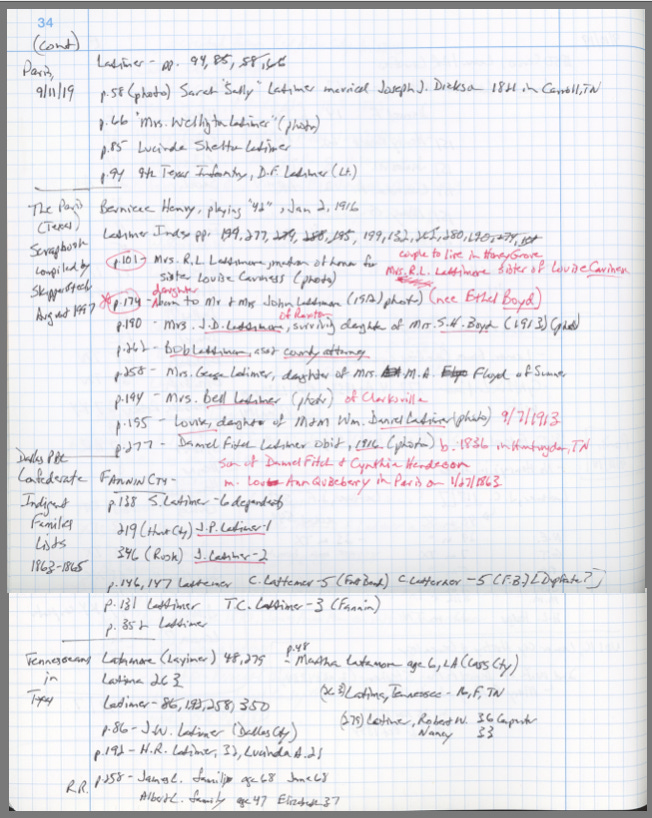 34
(cont)
Paris, 9/11/19
Latimer - pp. 94, 85, 58, 66
p.58 (photo) Sarah "Sally" Latimer married Joseph J. Dickson 1821 in Carroll, TN
p.66 "Mrs. Wellington Latimer" (photo)
p.85 Lucinda Shelton Latimer
p.94 9th Texas Infantry, D.F. Latimer (Lt.)
The Paris (Texas) Scrapbook compiled by Skipper Steely August 1997
Berniece Henry, playing "42", Jan 2, 1916
Latimer Index pp. 199, 277, 279, 288, 195, 199, 132, 262, 280, 190
p.101 - Mrs. R.L. Lattimore, matron of honor for couple to live in Honey Grove
sister Louise Caviness (photo) Mrs. R.L. Lattimore sister of Louise Caviness
daughter
p.174 - born to Mr & Mrs John Lattimore (1912) photo) (nee Ethel Boyd)
of Roxton
p.190 - Mrs. J.D. Lattimore, surviving daughter of Mrs. S.H. Boyd (1913) (photo)
p.262 - Bob Lattimore, asst county attorney
p.258 - Mrs. George Latimer, daughter of Mrs. M.A. Floyd of Sumner
p.194 - Mrs. Bell Latimer (photo) of Clarksville
p.195 - Louise, daughter of M&M Wm. Daniel Latimer (photo) 9/7/1913
p.277 - Daniel Fitch Latimer obit, 1916 (photo) b. 1836 in Huntingdon, TN
son of Daniel Fitch & Cynthia Henderson
m. Ann Quseberry in Paris on 1/27/1863
Dallas PBL
Confederate Indigent Families Lists 1863-1865
FANNIN CTY -
p.138 S. Latimer - 6 dependents
219 (Hunt Cty) J.P. Latimer - 1
346 (Rusk) J. Latimer - 2
p.146, 147 Lattemer C. Lattemer - 5 (Fort Bend) C. Latterner - 5 (F.B.) [Duplicate?]
p.131 Lattimer T.C. Lattimer - 3 (Fannin)
p.352 Lattimer
Tennesseans in Texas
Lathmore (Layimer) 48, 275 p.48 - Martha Latamore age 6, LA (Cass Cty)
Latima 263 (263) Latima, Tennessee - 16, F, TN
Latimer - 86, 192, 258, 350 (275) Latimer, Robert W. 36 Carpenter
Nancy 33
p.86 - J.W. Latimer (Dallas Cty)
p.192 - H.R. Latimer, 32, Lucinda A. 21
R.R. p.258 - James L. family age 68 Jane 68
Albert L. family age 47 Elizabeth 37